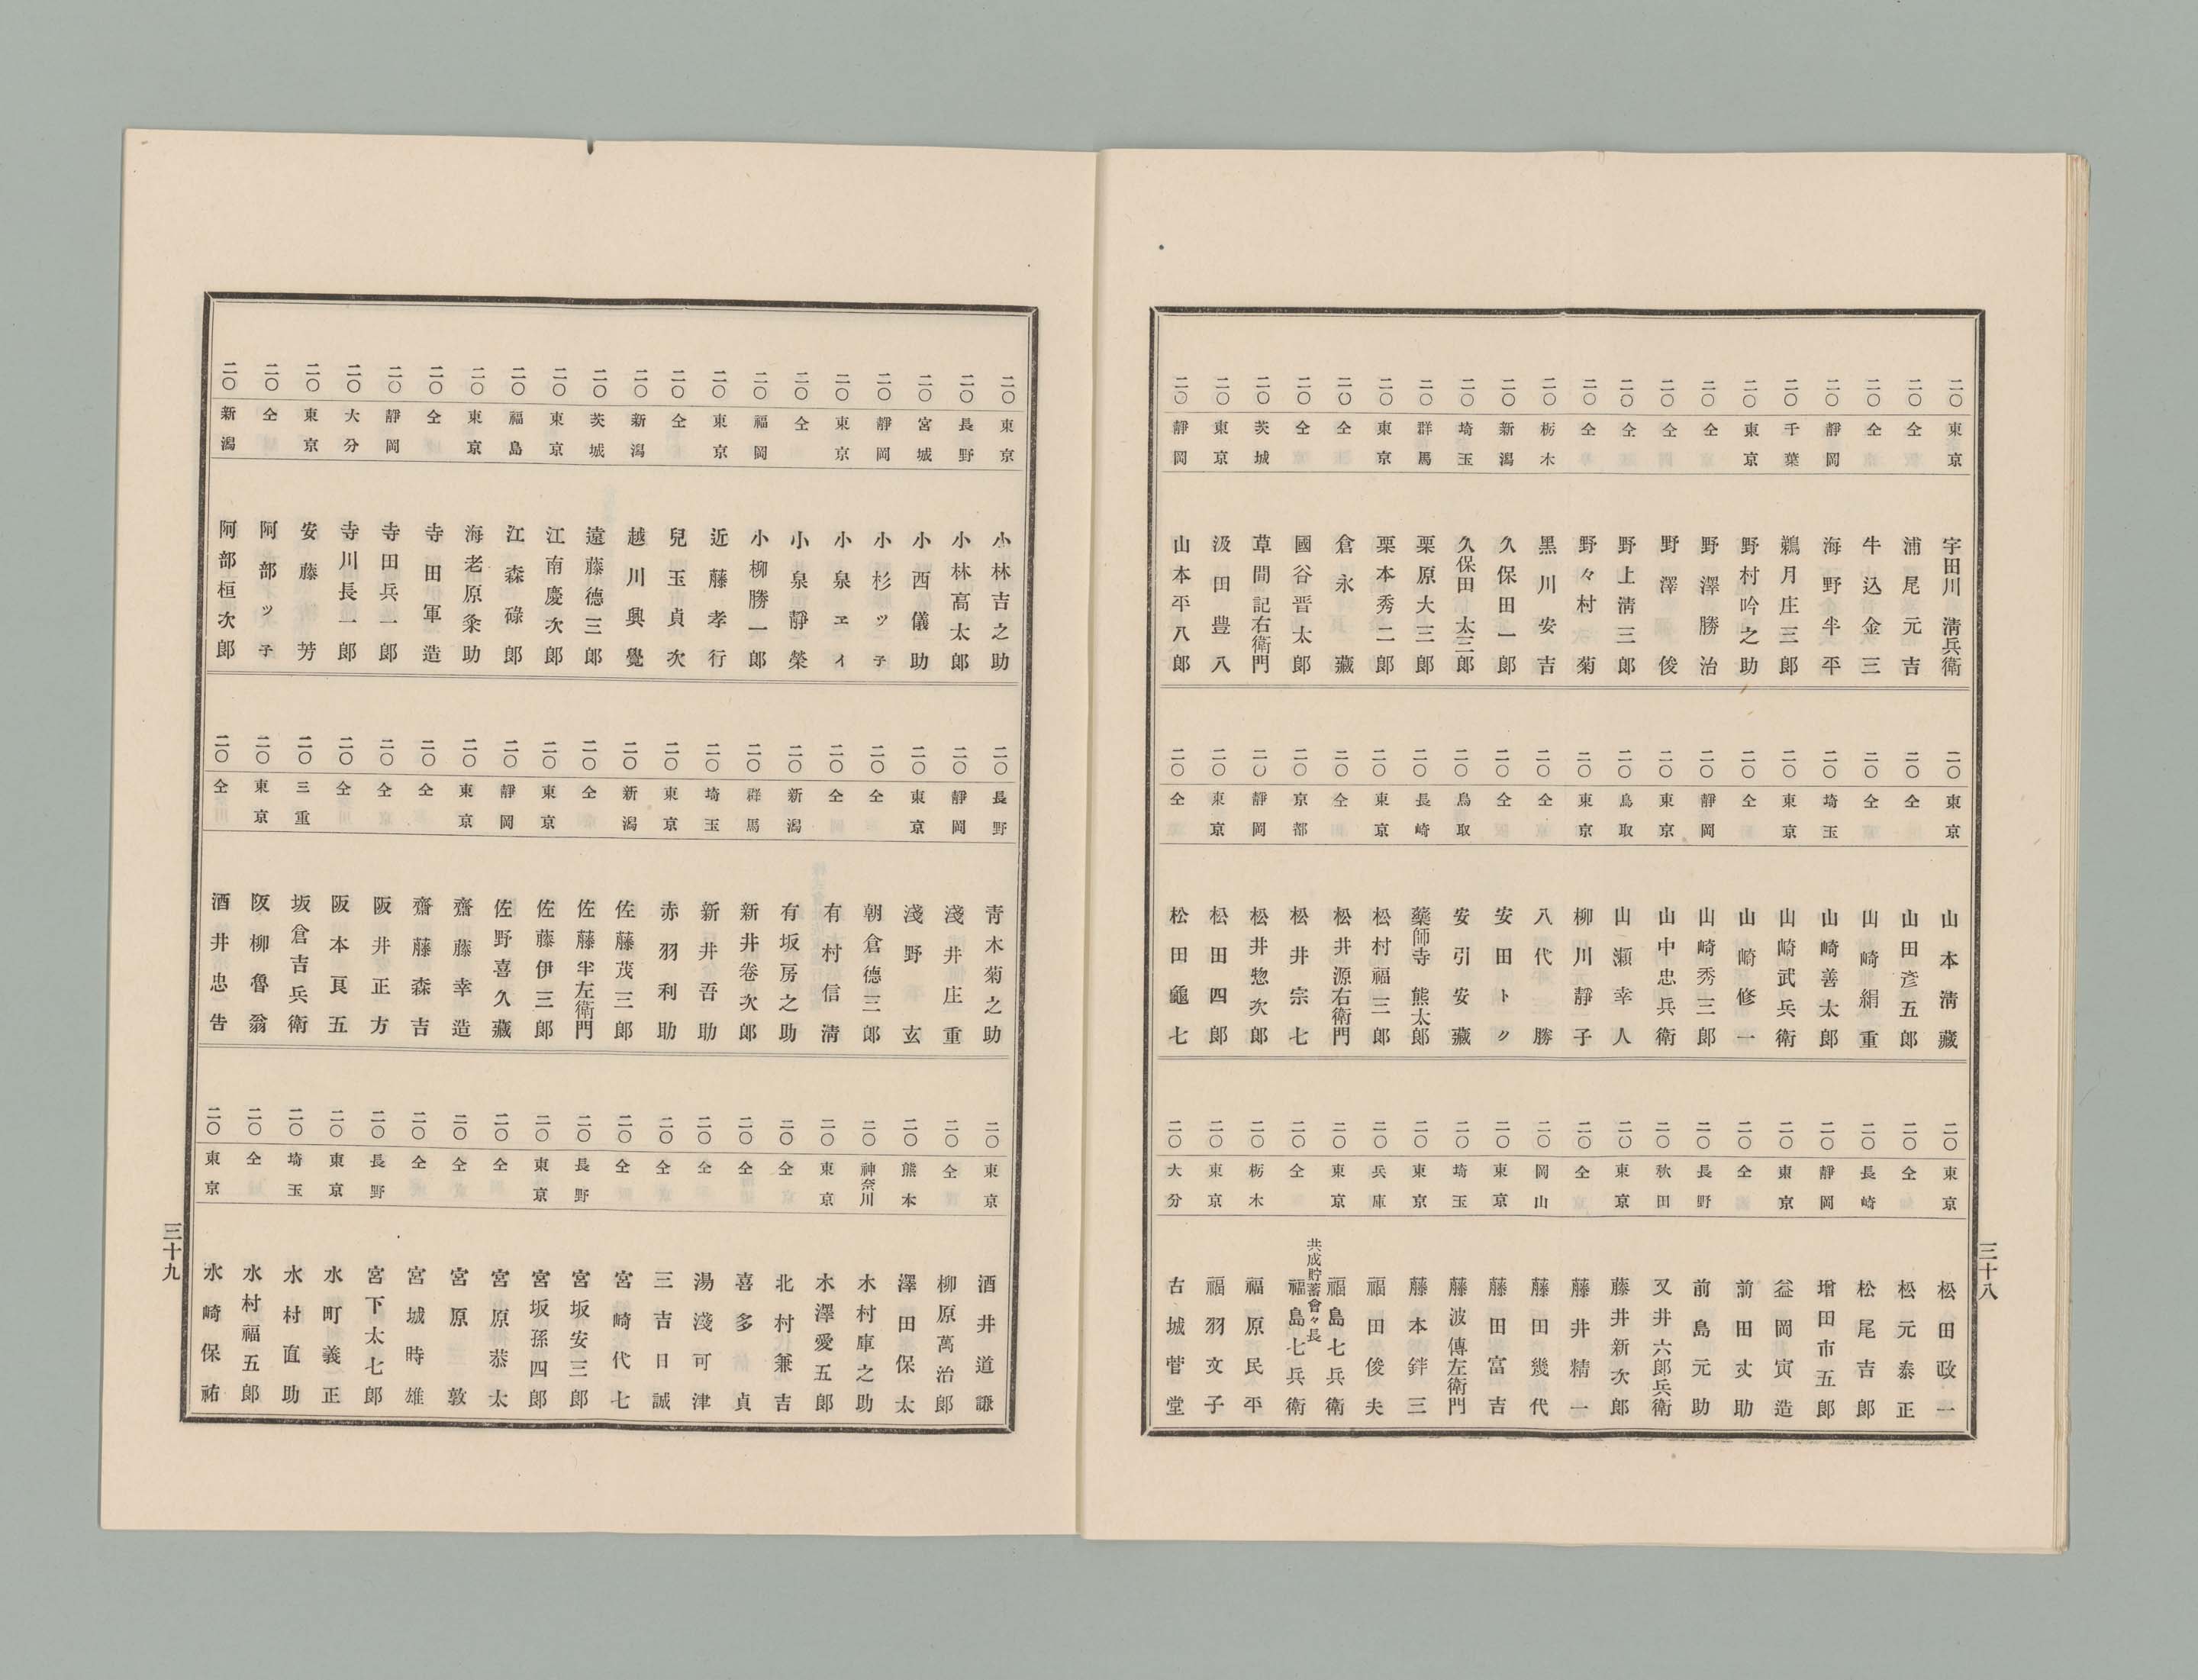 二〇 東京 宇田川淸兵衛
二〇 仝 浦尾元吉
二〇 仝 牛込金三
二〇 靜岡 海野半平
二〇 千葉 鵜月庄三郎
二〇 東京 野村吟之助
二〇 仝 野澤勝治
二〇 仝 野澤俊
二〇 仝 野上淸三郎
二〇 仝 野々村菊
二〇 栃木 黒川安吉
二〇 新潟 久保田一郎
二〇 埼玉 久保田太三郎
二〇 群馬 栗原大三郎
二〇 東京 栗本秀二郎
二〇 仝 倉永藏
二〇 仝 國谷晋太郎
二〇 茨城 草間記右衛門
二〇 東京 汲田豊八
二〇 靜岡 山本平八郎
二〇 東京 山本淸藏
二〇 仝 山田彦五郎
二〇 仝 山崎絹重
二〇 埼玉 山崎善太郎
二〇 東京 山崎武兵衛
二〇 仝 山崎修一
二〇 靜岡 山崎秀三郎
二〇 東京 山中忠兵衛
二〇 鳥取 山瀬幸人
二〇 東京 柳川靜子
二〇 仝 八代勝
二〇 仝 安田トク
二〇 鳥取 安引安藏
二〇 長崎 藥師寺熊太郎
二〇 東京 松村福三郎
二〇 仝 松井源右衛門
二〇 京都 松井宗七
二〇 靜岡 松井惣次郎
二〇 東京 松田四郎
二〇 仝 松田龜七
二〇 東京 松田政一
二〇 仝 松元泰正
二〇 長崎 松尾吉郎
二〇 靜岡 增田市五郎
二〇 東京 益岡寅造
二〇 仝 前田丈助
二〇 長野 前島元助
二〇 秋田 又井六郎兵衛
二〇 東京 藤井新次郎
二〇 仝 藤井精一
二〇 岡山 藤田幾代
二〇 東京 藤田富吉
二〇 埼玉 藤波傳左衛門
二〇 東京 藤本鉡三
二〇 兵庫 福田俊夫
二〇 東京 福島七兵衛
二〇 仝 共成貯蓄會々長 福島七兵衛
二〇 栃木 福原民平
二〇 東京 福羽文子
二〇 大分 古城菅堂
三十八
二〇 東京 小林吉之助
二〇 長野 小林高太郎
二〇 宮城 小西儀助
二〇 靜岡 小杉ツ子
二〇 東京 小泉ヱイ
二〇 仝 小泉靜榮
二〇 福岡 小柳勝一郎
二〇 東京 近藤孝行
二〇 仝 兒玉貞次
二〇 新潟 越川興覺
二〇 茨城 遠藤德三郎
二〇 東京 江南慶次郎
二〇 福島 江森碌郎
二〇 東京 海老原粂助
二〇 仝 寺田軍造
二〇 靜岡 寺田兵一郎
二〇 大分 寺川長一郎
二〇 東京 安藤芳
二〇 仝 阿部ツ子
二〇 新潟 阿部桓次郎
二〇 長野 靑木菊之助
二〇 靜岡 淺井庄重
二〇 東京 淺野玄
二〇 仝 朝倉德三郎
二〇 仝 有村信淸
二〇 新潟 有坂房之助
二〇 群馬 新井卷次郎
二〇 埼玉 新井吾助
二〇 東京 赤羽利助
二〇 新潟 佐藤茂三郎
二〇 仝 佐藤半左衛門
二〇 東京 佐藤伊三郎
二〇 靜岡 佐野喜久藏
二〇 東京 齋藤幸造
二〇 仝 齋藤森吉
二〇 仝 阪井正方
二〇 仝 阪本良五
二〇 三重 坂倉吉兵衛
二〇 東京 阪柳魯翁
二〇 仝 酒井忠告
二〇 東京 酒井道謙
二〇 仝 柳原萬治郎
二〇 熊本 澤田保太
二〇 神奈川 木村庫之助
二〇 東京 木澤愛五郎
二〇 仝 北村兼吉
二〇 仝 喜多貞
二〇 仝 湯淺可津
二〇 仝 三吉日誠
二〇 仝 宮崎代七
二〇 長野 宮坂安三郎
二〇 東京 宮坂孫四郎
二〇 仝 宮原恭太
二〇 仝 宮原敦
二〇 仝 宮城時雄
二〇 長野 宮下太七郎
二〇 東京 水町義正
二〇 埼玉 水村直助
二〇 仝 水村福五郎
二〇 東京 水崎保祐
三十九